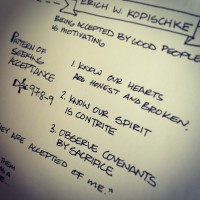 ERICH W. KOPISCHKE
BEING ACCEPTED BY GOOD PEOPLE
IS MOTIVATING
PATTERN OF
SEEKING
ACCEPTANCE
97:8-9
1. KNOW OUR HEARTS
ARE HONEST AND BROKEN.
2. KNOW OUR SPIRIT
IS CONTRITE
3. OBSERVE COVENANTS
BY SACRIFICE
THEY ARE ACCEPTED OF ME."